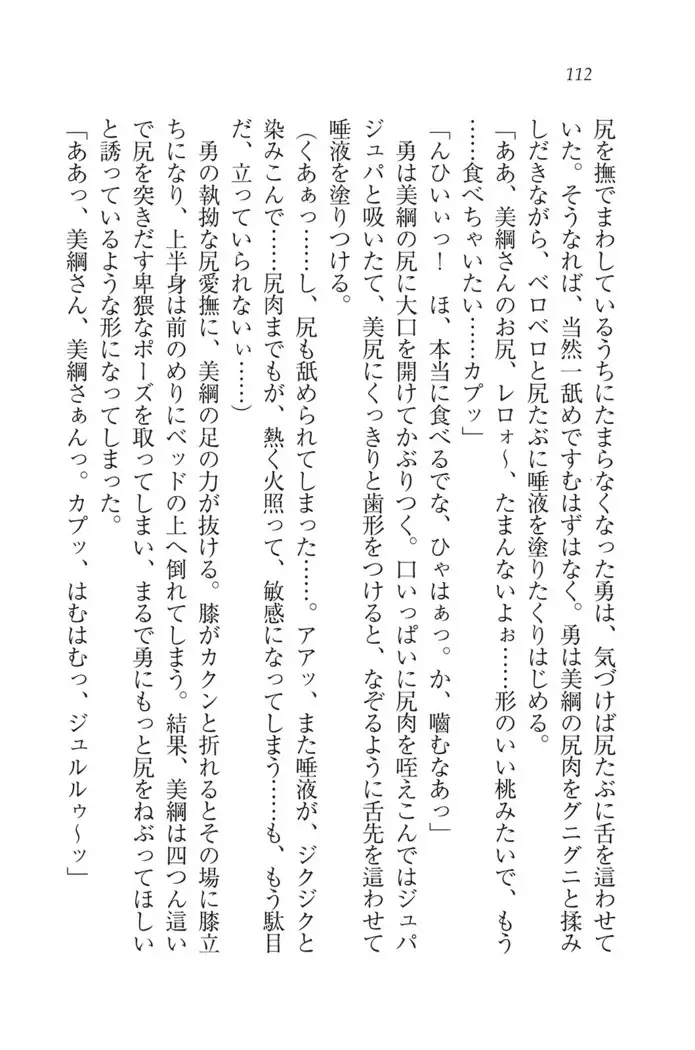 112
尻を撫でまわしているうちにたまらなくなった勇は、気づけば尻たぶに舌を這わせて
いた。そうなれば、当然一舐めですむはずはなく。勇は美綱の尻肉をグニグニと揉み
しだきながら、ベロベロと尻たぶに唾液を塗りたくりはじめる。
「ああ、美綱さんのお尻、レロォ～、たまんないよぉ……形のいい桃みたいで、もう
……食べちゃいたい……カプッ」
「んひいぃっ！　ほ、本当に食べるでな、ひゃはぁっ。か、嚙むなあっ」
　勇は美綱の尻に大口を開けてかぶりつく。口いっぱいに尻肉を咥えこんではジュパ
ジュパと吸いたて、美尻にくっきりと歯形をつけると、なぞるように舌先を這わせて
唾液を塗りつける。
（くあぁっ……し、尻も舐められてしまった……。アアッ、また唾液が、ジクジクと
染みこんで……尻肉までもが、熱く火照って、敏感になってしまう……も、もう駄目
だ、立っていられないぃ……）
　勇の執拗な尻愛撫に、美綱の足の力が抜ける。膝がカクンと折れるとその場に膝立
ちになり、上半身は前のめりにベッドの上へ倒れてしまう。結果、美綱は四つん這い
で尻を突きだす卑猥なポーズを取ってしまい、まるで勇にもっと尻をねぶってほしい
と誘っているような形になってしまった。
「ああっ、美綱さん、美綱さぁんっ。カプッ、はむはむっ、ジュルルゥ～ッ」